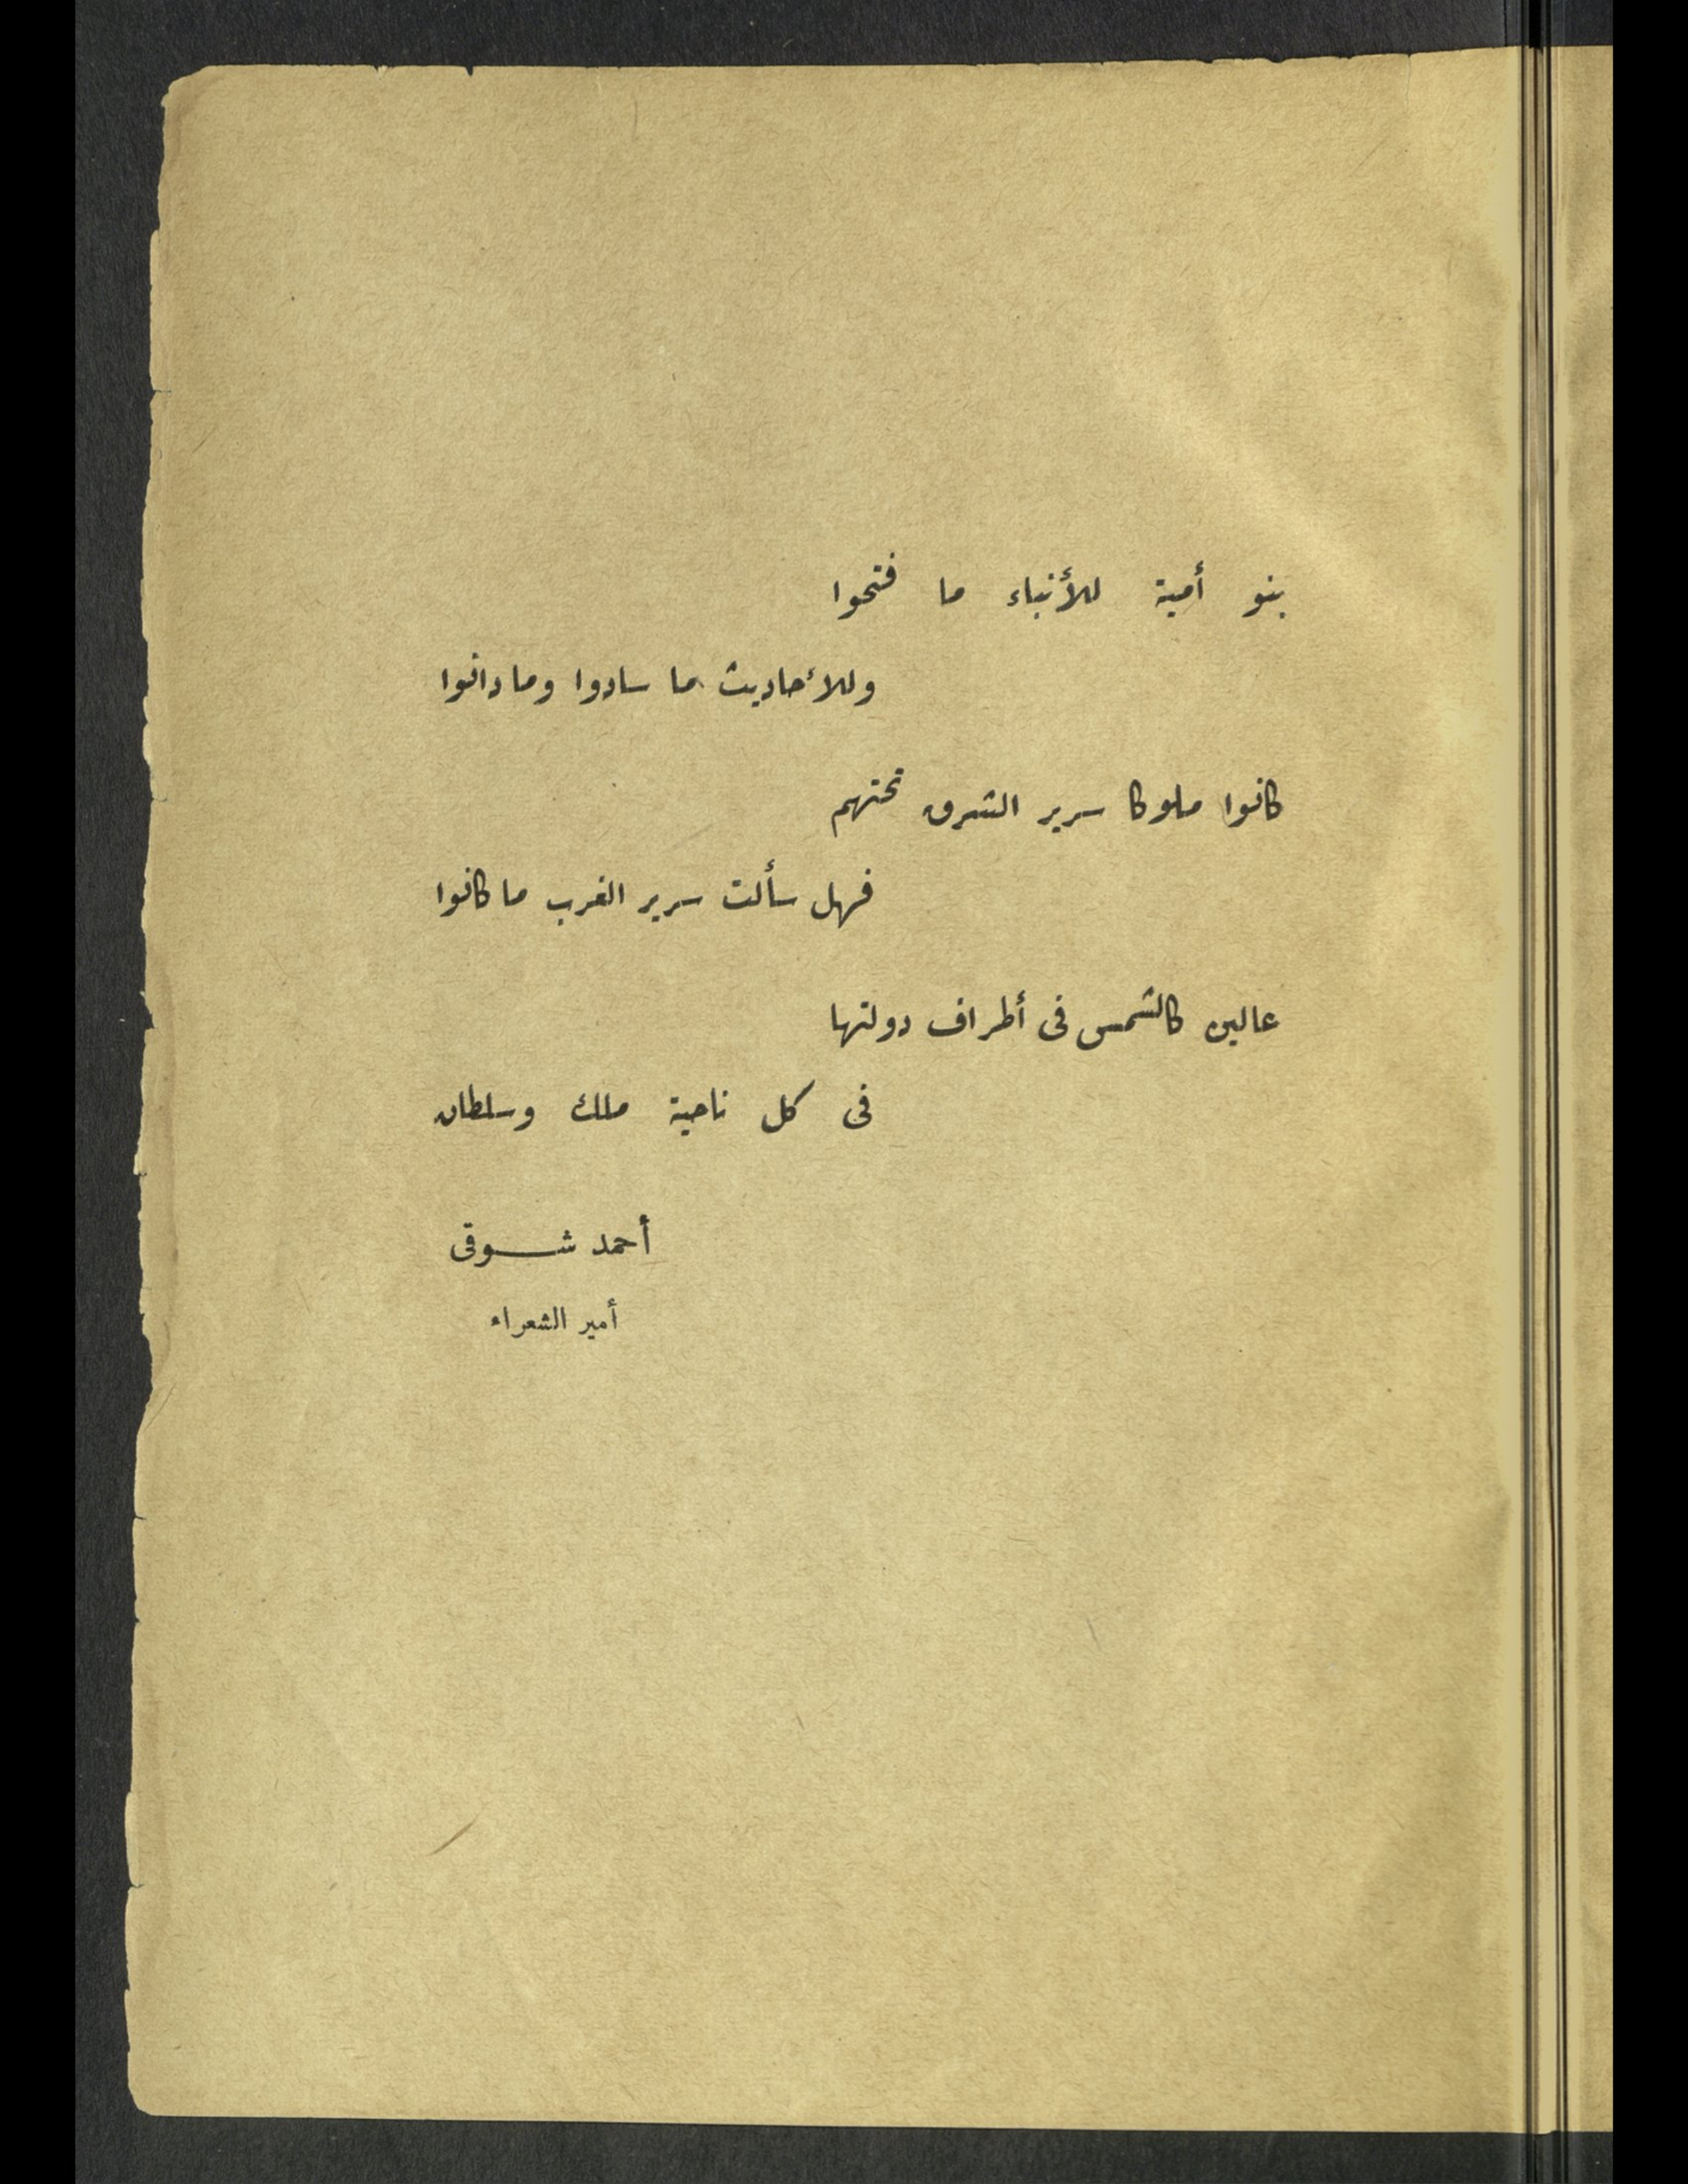 بنو أمية للأنباء ما فتحوا
وللأحاديث ما سادوا وما دانوا
كانوا ملوكا سرير الشرق تحتهم
فهل سألت سرير الغرب ما كانوا
عالين كالشمس فى أطراف دولتها
فى كل ناحية ملك وسلطان
أحمد شـــوقى
أمير الشعراء